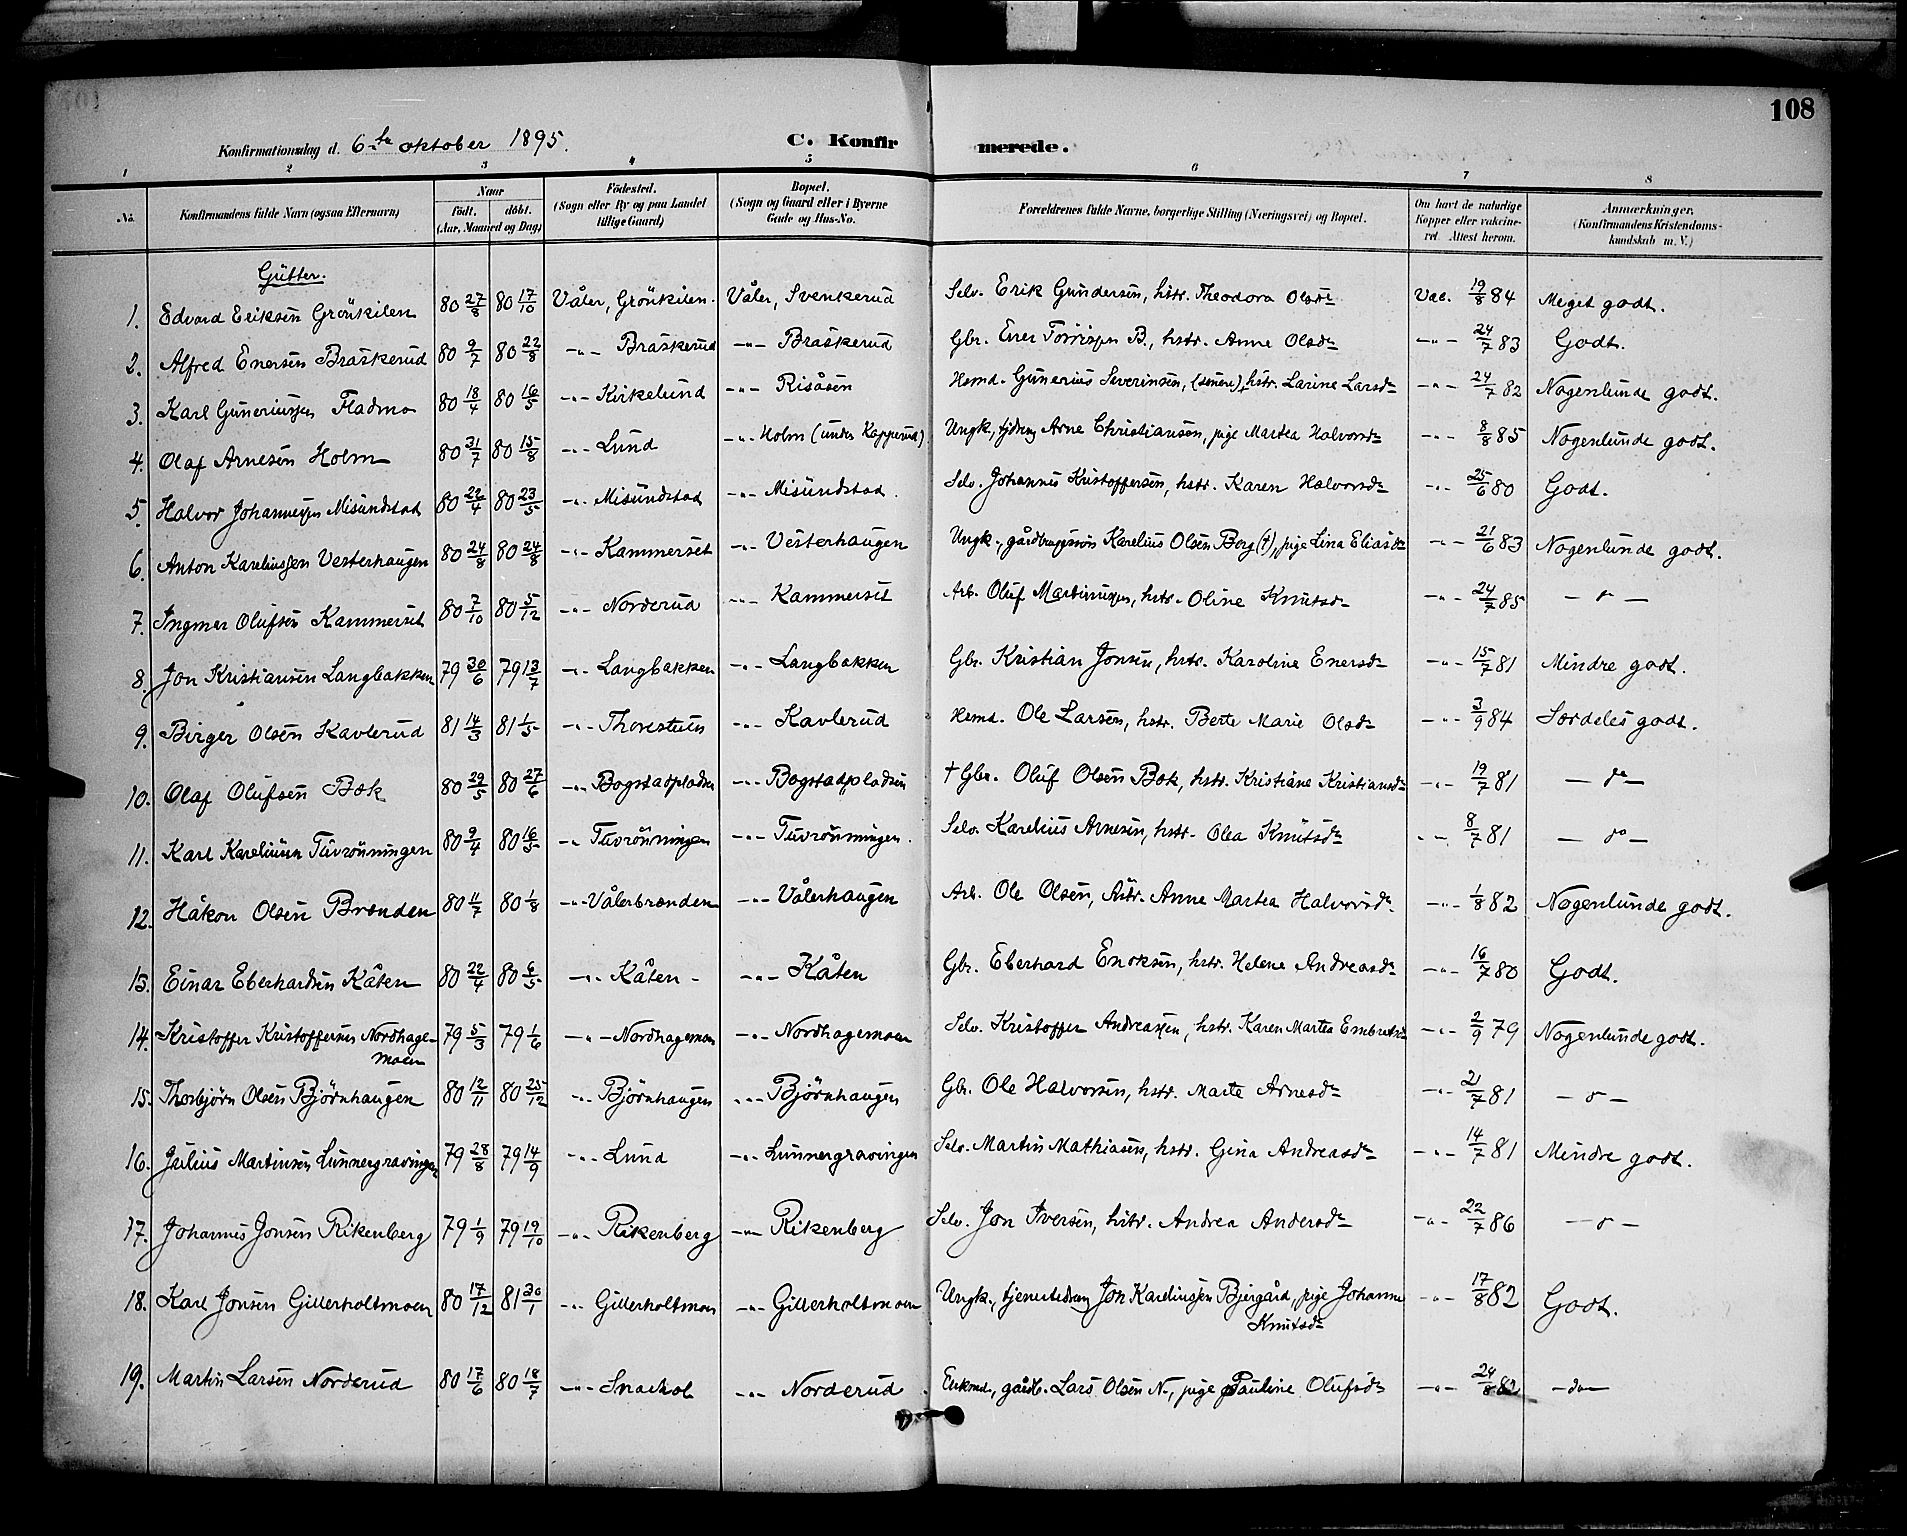 108
Konfirmationsdag d. 6te oktober 1895.
C. Konfirmerede.
1 2 3 4 5 6 7 8
No. Konfirmandens fulde Navn (ogsaa Efternavn) Naar födt. döbt. (Aar, Maaned og Dag) Födested. (Sogn eller By og paa Landet tillige Gaard) Bopæl. (Sogn og Gaard eller i Byerne Gade og Hus-No. Forældrenes fulde Navne, borgerlige Stilling (Næringsvei) og Bopæl. Om havt de naturlige Kopper eller vakcineret. Attest herom. Anmærkninger. (Konfirmandens Kristendomskundskab m. V.)
Gutter.
1. Edvard Eriksen Grönkilen 80 27/8 80 17/10 Våler, Grönkilen. Våler, Svenkerud Selv. Erik Gundersen, hstr. Theodora Olsdr Vac. 19/8 84 Meget godt.
2. Alfred Enersen Braskerud 80 9/7 80 22/8 -"- Braskerud -"- Braskerud Gbr. Ener Torrisen B., hstr. Anne Olsdr -"- 24/7 83 Godt.
3. Karl Guneriussen Fladmo 80 18/4 80 16/5 -"- Kirkelund -"- Risåsen Hemd. Gunerius Severinsen, (senere) hstr. Larine Larsdr -"- 24/7 82 Nogenlunde godt.
4. Olaf Arnesen Holm 80 31/7 80 15/8 -"- Lund -"- Holm (under Kapperud) Ungk., tjdreng Arne Christiansen, pige Martea Halvorsdr -"- 8/8 85 Nogenlunde godt.
5. Halvor Johannessen Misundstad 80 22/4 80 23/5 -"- Misundstad -"- Misundstad. Selv. Johannes Kristoffersen, hstr. Karen Halvorsdr -"- 25/6 80 Godt.
6. Anton Kareliussen Vesterhaugen 80 24/8 80 24/8 -"- Kammerset -"- Vesterhaugen Ungk., gårdbrugersøn Karelius Olsen Berg (†), pige Lina Eliasdr -"- 21/6 83 Nogenlunde godt.
7. Ingmar Olufsen Kammerset 80 7/10 80 5/12 -"- Norderud -"- Kammerset Arb. Oluf Martinussen, hstr. Oline Knutsdr -"- 24/7 85 - o -
8. Jon Kristiansen Langbakken 79 30/6 79 13/7 -"- Langbakken -"- Langbakken Gbr. Kristian Jonsen, hstr. Karoline Enersdr -"- 15/7 81 Mindre godt.
9. Birger Olsen Kavlerud 81 14/3 81 1/5 -"- Thorestuen -"- Kavlerud Hemd. Ole Larsen, hstr. Berte Marie Olsdr -"- 3/9 84 Særdeles godt.
10. Olaf Olufsen Bok 80 29/5 80 27/6 -"- Bogstadpladsen -"- Bogstadpladsen † Gbr. Oluf Olsen Bok, hstr. Kristiane Kristiansdr -"- 19/7 81 - do -
11. Karl Kareliusen Tuvrönningen 80 9/4 80 16/5 -"- Tuvrönningen -"- Tuvrönningen. Selv. Karelius Arnesen, hstr. Olea Knutsdr -"- 8/7 81 - do -
12. Håkon Olsen Brænden 80 11/7 80 1/8 -"- Vålerbrænden -"- Vålerhaugen Arb. Ole Olsen, hstr. Anne Martea Halvorsdr -"- 1/8 82 Nogenlunde godt.
13. Einar Eberhardsen Kåten 80 22/4 80 6/5 -"- Kåten -"- Kåten Gbr. Eberhard Enoksen, hstr. Helene Andreasdr -"- 16/7 80 Godt.
14. Kristoffer Kristoffersen Nordhagemoen 79 5/3 79 1/6 -"- Nordhagemoen -"- Nordhagemoen Selv. Kristoffer Andreassen, hstr. Karen Martea Embretsdr -"- 2/9 79 Nogenlunde godt.
15. Thorbjørn Olsen Björnhaugen 80 12/11 80 25/12 -"- Björnhaugen -"- Björnhaugen Gbr. Ole Halvorsen, hstr. Marte Arnesdr -"- 21/7 81 - o -
16. Julius Martinsen Lunnergravingen 79 28/8 79 14/9 -"- Lund -"- Lunnergravingen Selv. Martin Mathiasen, hstr. Gina Andreasdr -"- 14/7 81 Mindre godt.
17. Johannes Jonsen Rikenberg 79 1/9 79 19/10 -"- Rikenberg -"- Rikenberg Selv. Jon Iversen, hstr. Andrea Andersdr -"- 22/7 86 - o -
18. Karl Jonsen Gillerholtmoen 80 17/12 81 30/1 -"- Gillerholtmoen -"- Gillerholtmoen Ungk., tjenestedreng Jon Kareliussen Bjergård, pige Johanne Knutsdr -"- 17/8 82 Godt.
19. Martin Larsen Norderud 80 17/6 80 18/7 -"- Snarhol -"- Norderud Enkmd, gårdb. Lars Olsen N-, pige Pauline Olufsdr -"- 24/8 82 - do -